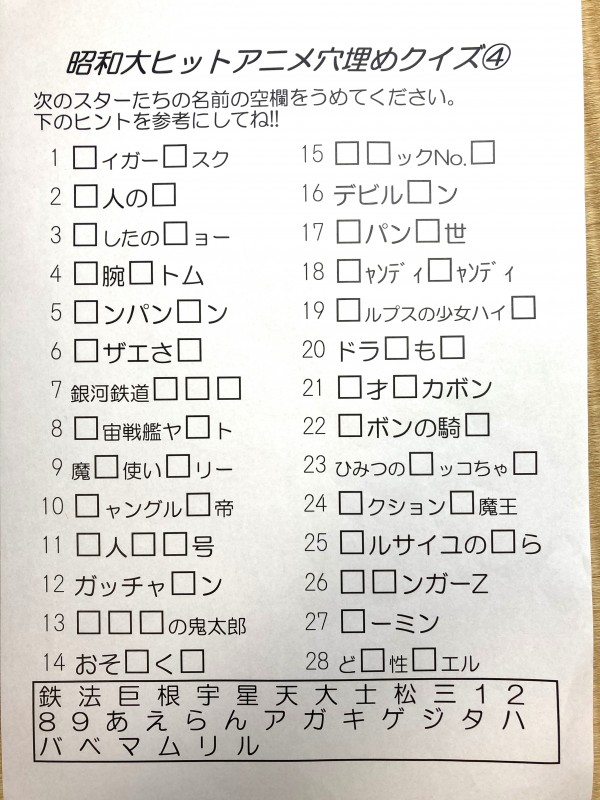 昭和大ヒットアニメ穴埋めクイズ④
次のスターたちの名前の空欄をうめてください。
下のヒントを参考にしてね!!
1 □ィガー□スク
2 □人の□
3 □したの□ョー
4 □腕□トム
5 □ンパン□ン
6 □ザエさ□
7 銀河鉄道□□□
8 □宙戦艦ヤ□ト
9 魔□使い□リー
10 □ャングル□帝
11 □人□□号
12 ガッチャ□ン
13 □□□の鬼太郎
14 おそ□く□
15 □□ックNo.□
16 デビル□ン
17 □パン□世
18 □ャンディ□ャンディ
19 □ルプスの少女ハイ□
20 ドラ□も□
21 □才□カボン
22 □ボンの騎□
23 ひみつの□ッコちゃ□
24 □クション□魔王
25 □ルサイユの□ら
26 □□ンガーZ
27 □ーミン
28 ど□性□エル
鉄 法 巨 根 宇 星 天 大 士 松 三 1 2
8 9 あ え ら ん ア ガ キ ゲ ジ タ ハ
バ ベ マ ム リ ル